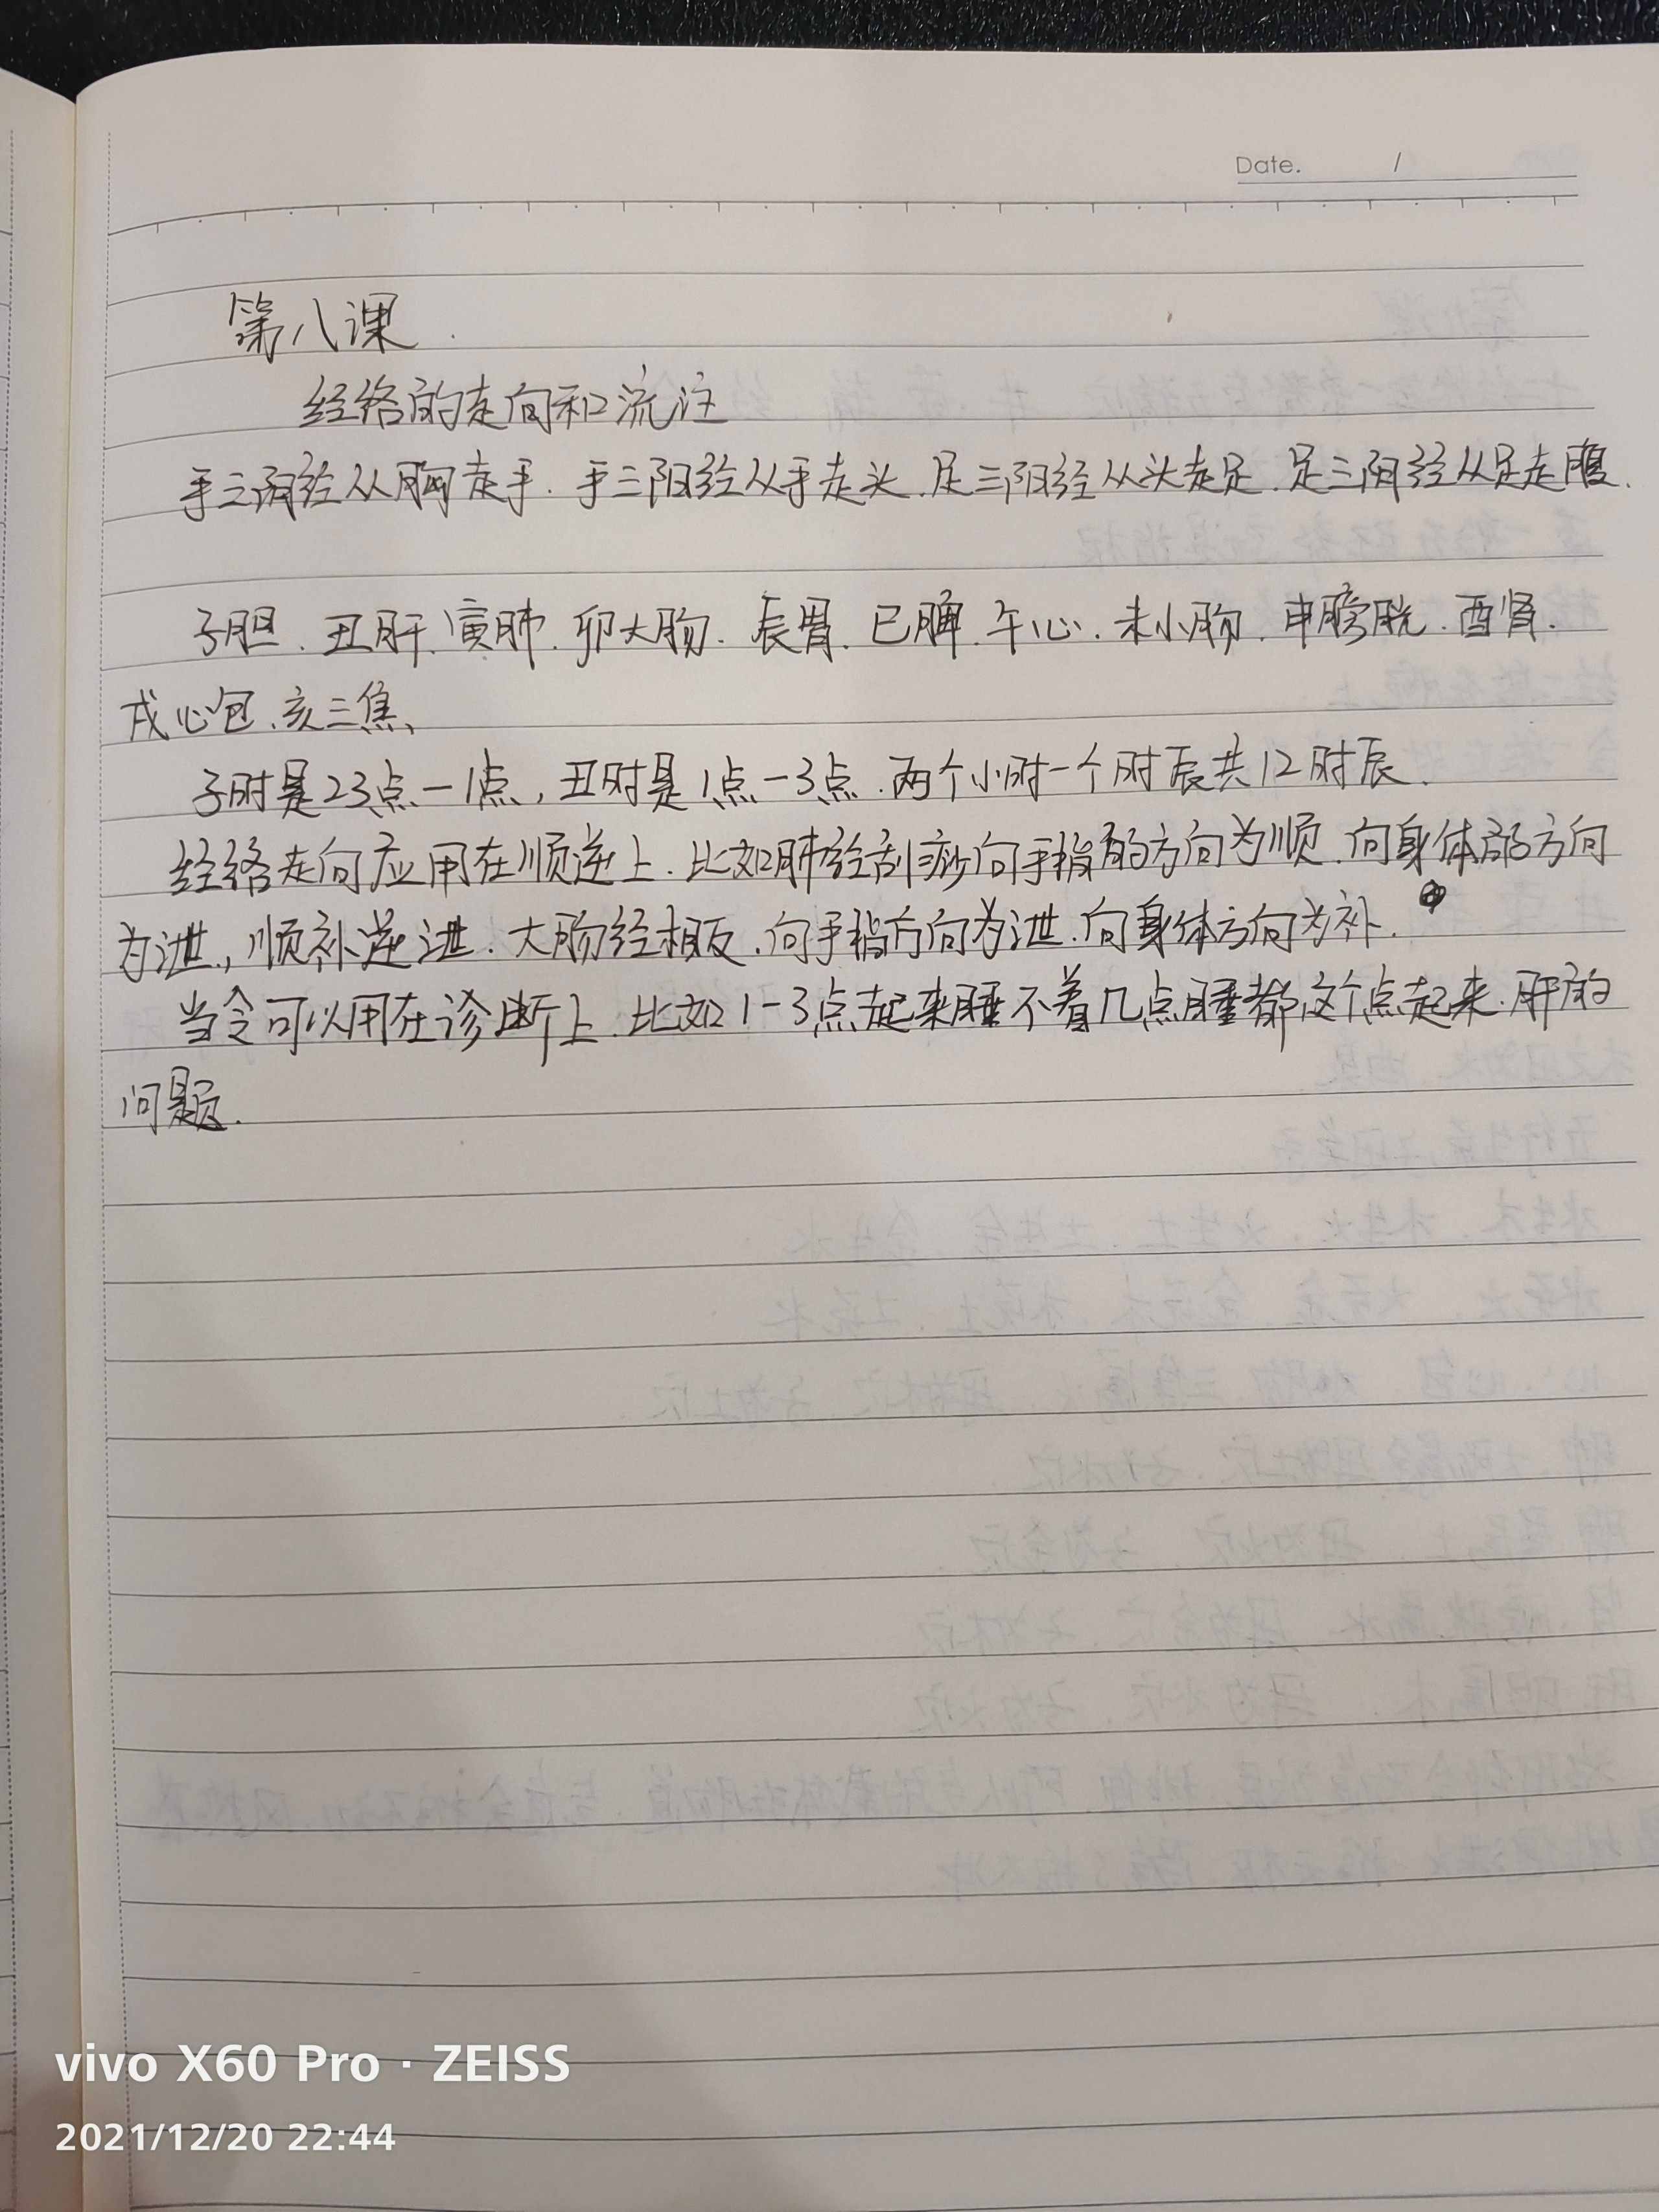 Date. /
第八课.
经络的走向和流注
手三阴经从胸走手.手三阳经从手走头.足三阳经从头走足.足三阴经从足走腹.
子胆.丑肝.寅肺.卯大肠.辰胃.巳脾.午心.未小肠.申膀胱.酉肾.
戌心包.亥三焦、
子时是23点-1点,丑时是1点-3点.两个小时一个时辰共12时辰.
经络走向应用在顺逆上.比如肺经刮痧向手指的方向为顺.向身体部方向
为泄,顺补逆泄.大肠经相反.向手指方向为泄.向身体方向为补.
当令可以用在诊断上.比如1-3点起来睡不着几点睡都这个点起来.肝的
问题.
vivo X60 Pro · ZEISS
2021/12/20 22:44